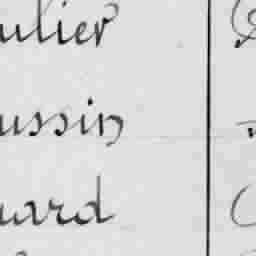 ulier
ussin
uard